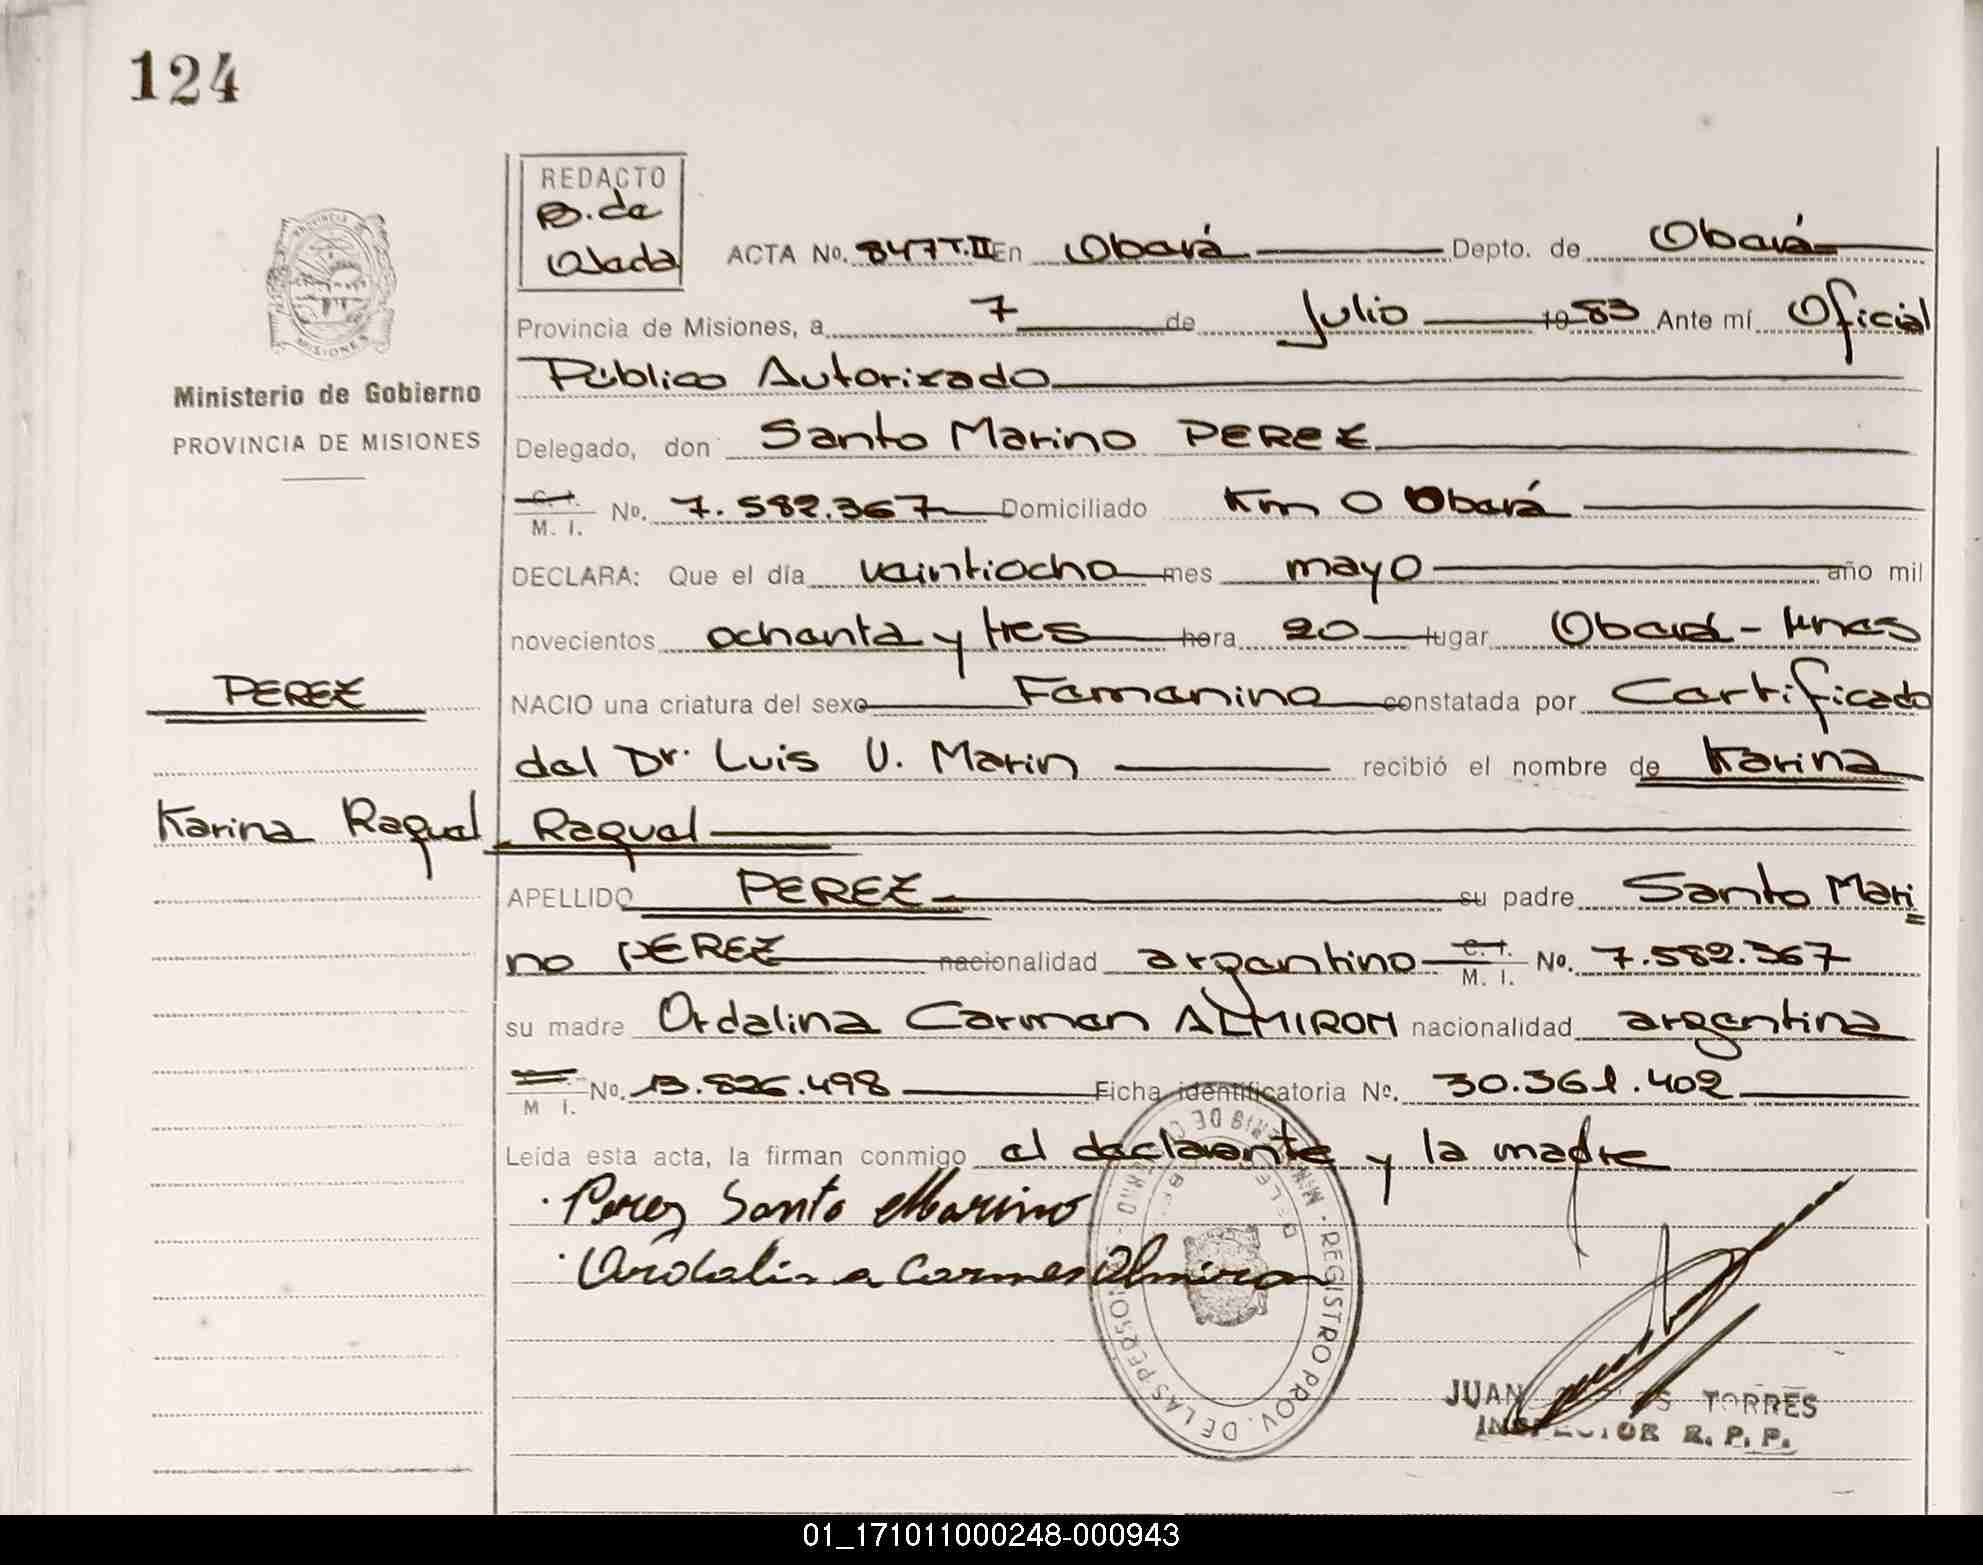 124
REDACTO
B. de
Olada
ACTA No. 847 T.II En Oberá Depto. de Oberá
Provincia de Misiones, a 7 de Julio 1983 Ante mí Oficial
Público Autorizado
Delegado, don Santo Marino PEREZ
C. I.
M. I. No. 7.582.367 Domiciliado Km 0 Oberá
DECLARA: Que el día veintiocho mes mayo año mil
novecientos ochenta y tres hora 20 lugar Oberá - Mnes
NACIO una criatura del sexo Femenino constatada por Certificado
del Dr. Luis V. Marin recibió el nombre de Karina
Raquel
APELLIDO PEREZ su padre Santo Mari=
no PEREZ nacionalidad argentino C. I.
M. I. No. 7.582.367
su madre Ordalina Carmen ALMIRON nacionalidad argentina
M I. No. 13.826.498 Ficha identificatoria No. 30.361.402
Leída esta acta, la firman conmigo el declarante y la madre
Perez Santo Marino
Ordalina Carmen Almiron
Ministerio de Gobierno
PROVINCIA DE MISIONES
PEREZ
Karina Raquel
PROVINCIA DE
MISIONES
REGISTRO PROV. DE LAS PERSO
JUAN TORRES
INSPECTOR R. P. P.
01_171011000248-000943